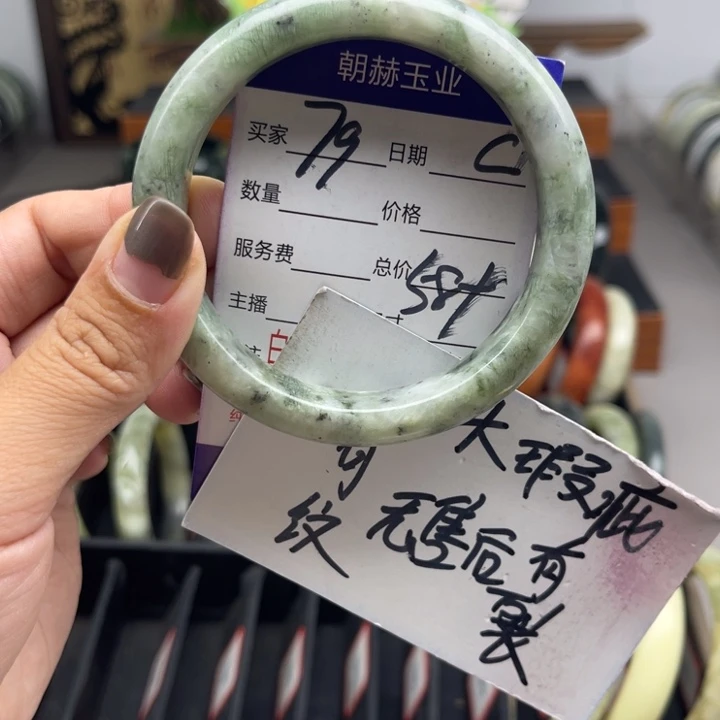 朝赫玉业
买家 79 日期 C1
数量 价格
服务费 总价
58+
主播 寸
白
大瑕疵
无售后有裂
纹